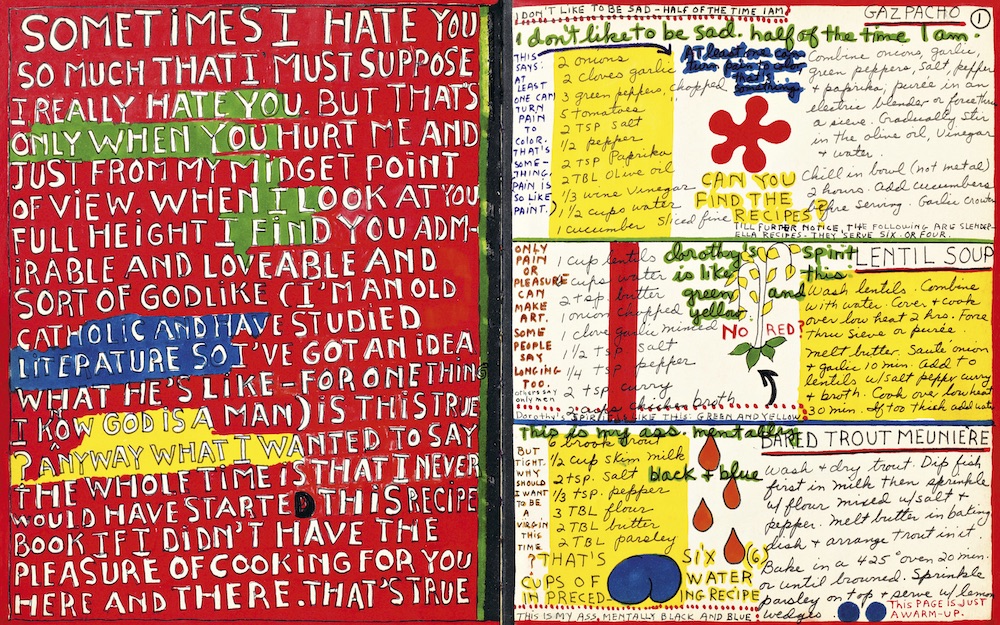 SOMETIMES I HATE YOU
SO MUCH THAT I MUST SUPPOSE
I REALLY HATE YOU. BUT THAT'S
ONLY WHEN YOU HURT ME AND
JUST FROM MY MIDGET POINT
OF VIEW. WHEN I LOOK AT YOU
FULL HEIGHT I FIND YOU ADM-
IRABLE AND LOVEABLE AND
SORT OF GODLIKE (I'M AN OLD
CATHOLIC AND HAVE STUDIED
LITEPATURE SO I'VE GOT AN IDEA
WHAT HE'S LIKE - FOR ONE THING
I KNOW GOD IS A MAN) IS THIS TRUE
? ANYWAY WHAT I WANTED TO SAY
THE WHOLE TIME IS THAT I NEVER
WOULD HAVE STARTED THIS RECIPE
BOOK IF I DIDN'T HAVE THE
PLEASURE OF COOKING FOR YOU
HERE AND THERE. THAT'S TRUE
I DON'T LIKE TO BE SAD - HALF OF THE TIME I AM
GAZPACHO
1
i don't like to be sad. half of the time I am.
THIS
SAYS:
AT
LEAST
ONE CAN
TURN
PAIN
TO
COLOR.
THAT'S
SOME-
THING.
PAIN IS
SO LIKE
PAINT.)
2 onions
2 cloves garlic
3 green peppers, chopped
5 tomatoes
2 TSP salt
1/2 pepper
2 TSP Paprika
2 TBL Olive oil
1/3 wine Vinegar
1 1/2 cups water
1 cucumber sliced fine
At least one can
turn pain to color
that's
something
CAN YOU
FIND THE
RECIPES?
Combine onions, garlic,
green peppers, salt, pepper
+ paprika, purée in an
electric blender or force thru
a sieve. Gradually stir
in the olive oil, Vinegar
+ water.
Chill in bowl (not metal)
2 hours. add cucumbers
before serving. Garlic croutons
TILL FURTHER NOTICE, THE FOLLOWING ARE SLENDER-
ELLA RECIPES. THEY SERVE SIX OR FOUR.
ONLY
PAIN
OR
PLEASURE
CAN
MAKE
ART.
SOME
PEOPLE
SAY
LONGING
TOO.
others say
only men
1 cup lentils
cups water
2 tsp butter
1 onion chopped
1 clove garlic minced
1 1/2 tsp salt
1/4 tsp pepper
2 tsp curry
2 cups chicken broth
dorothy's spirit
is like this
green and
yellow.
NO RED?
LENTIL SOUP
Wash lentils. Combine
with water. Cover + cook
over low heat 2 hrs. Force
thru sieve or purée.
melt butter. Sauté onion
+ garlic 10 min. add to
lentils w/salt pepper curry
+ broth. Cook over low heat
30 min. If too thick add water
Dorothy's SPIRIT IS LIKE THIS: GREEN AND YELLOW
this is my ass. mentally
black + blue
BUT
TIGHT.
WHY
SHOULD
I WANT
TO BE
A
VIRGIN
THIS
TIME
?
6 brook trout
1/2 cup skim milk
2 tsp. salt
1/3 tsp. pepper
3 TBL flour
2 TBL butter
2 TBL parsley
THAT'S SIX (6)
CUPS OF WATER
IN PRECED- ING RECIPE
BAKED TROUT MEUNIÈRE
Wash + dry trout. Dip fish
first in milk then sprinkle
w/ flour mixed w/salt +
pepper. melt butter in baking
dish + arrange trout in it.
Bake in a 425° oven 20 min.
or until browned. Sprinkle
parsley on top + serve w/ lemon
wedges
THIS PAGE IS JUST
A WARM-UP.
THIS IS MY ASS, MENTALLY BLACK AND BLUE